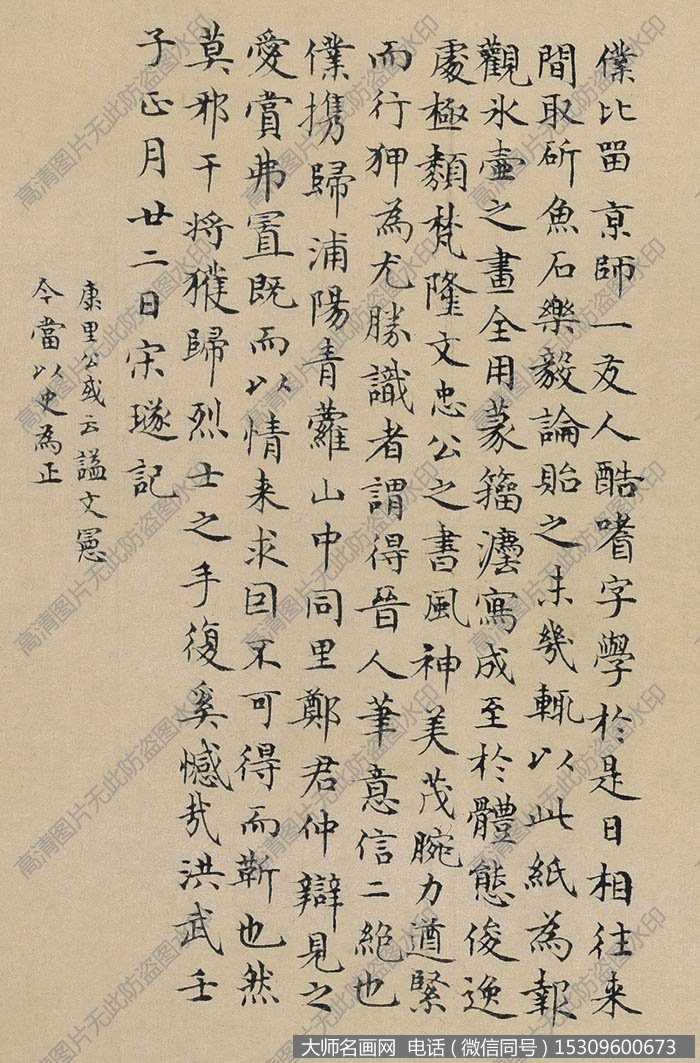 僕比留京師一友人酷嗜字學於是日相往来
間取斫魚石樂毅論貽之未幾輒以此紙為報
觀氷壺之畫全用篆籀灋寫成至於體態俊逸
處極類梵隆文忠公之書風神美茂腕力遒緊
而行狎為尤勝識者謂得晉人筆意信二絶也
僕携歸浦陽青蘿山中同里鄭君仲辯見之
愛賞弗置既而以情来求回不可得而靳也然
莫邪干将獲歸烈士之手復奚憾㢤洪武壬
子正月廿二日宋璲記
康里公或云謚文憲
今當以史為正
高清图片无此防盗图水印
大师名画网 电话(微信同号)15309600673